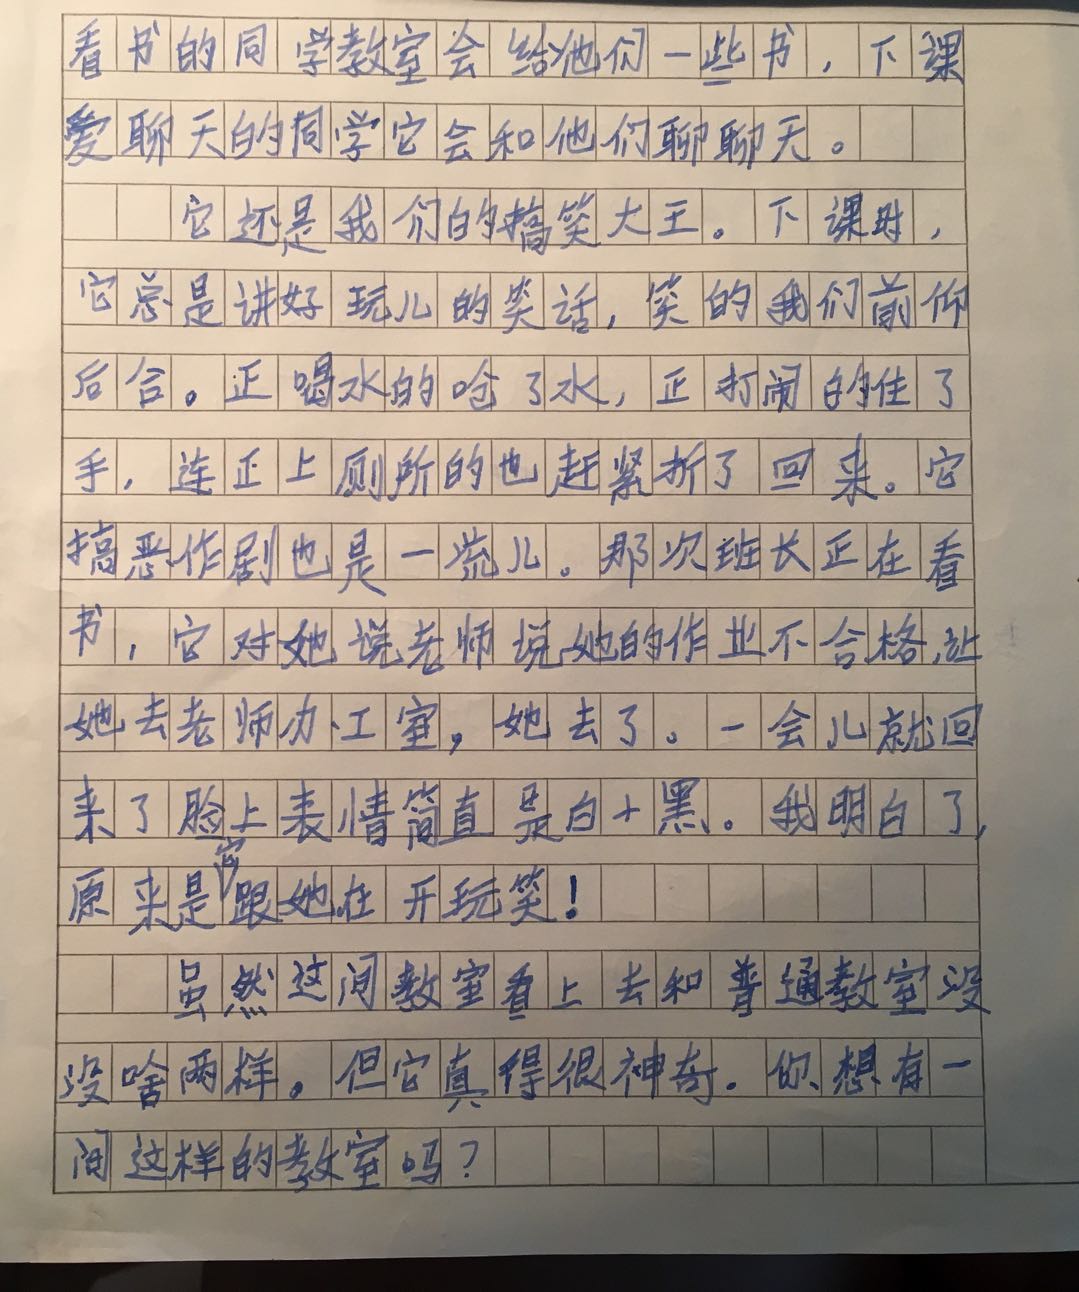 看书的同学教室会给他们一些书，下课
爱聊天的同学它会和他们聊聊天。
它还是我们的搞笑大王。下课时，
它总是讲好玩儿的笑话，笑的我们前仰
后合。正喝水的呛了水，正打闹的住了
手，连正上厕所的也赶紧折了回来。它
搞恶作剧也是一流儿。那次班长正在看
书，它对她说老师说她的作业不合格，让
她去老师办工室，她去了。一会儿就回
来了脸上表情简直是白+黑。我明白了，
原来是它跟她在开玩笑！
虽然这间教室看上去和普通教室没
没啥两样。但它真得很神奇。你想有一
间这样的教室吗？